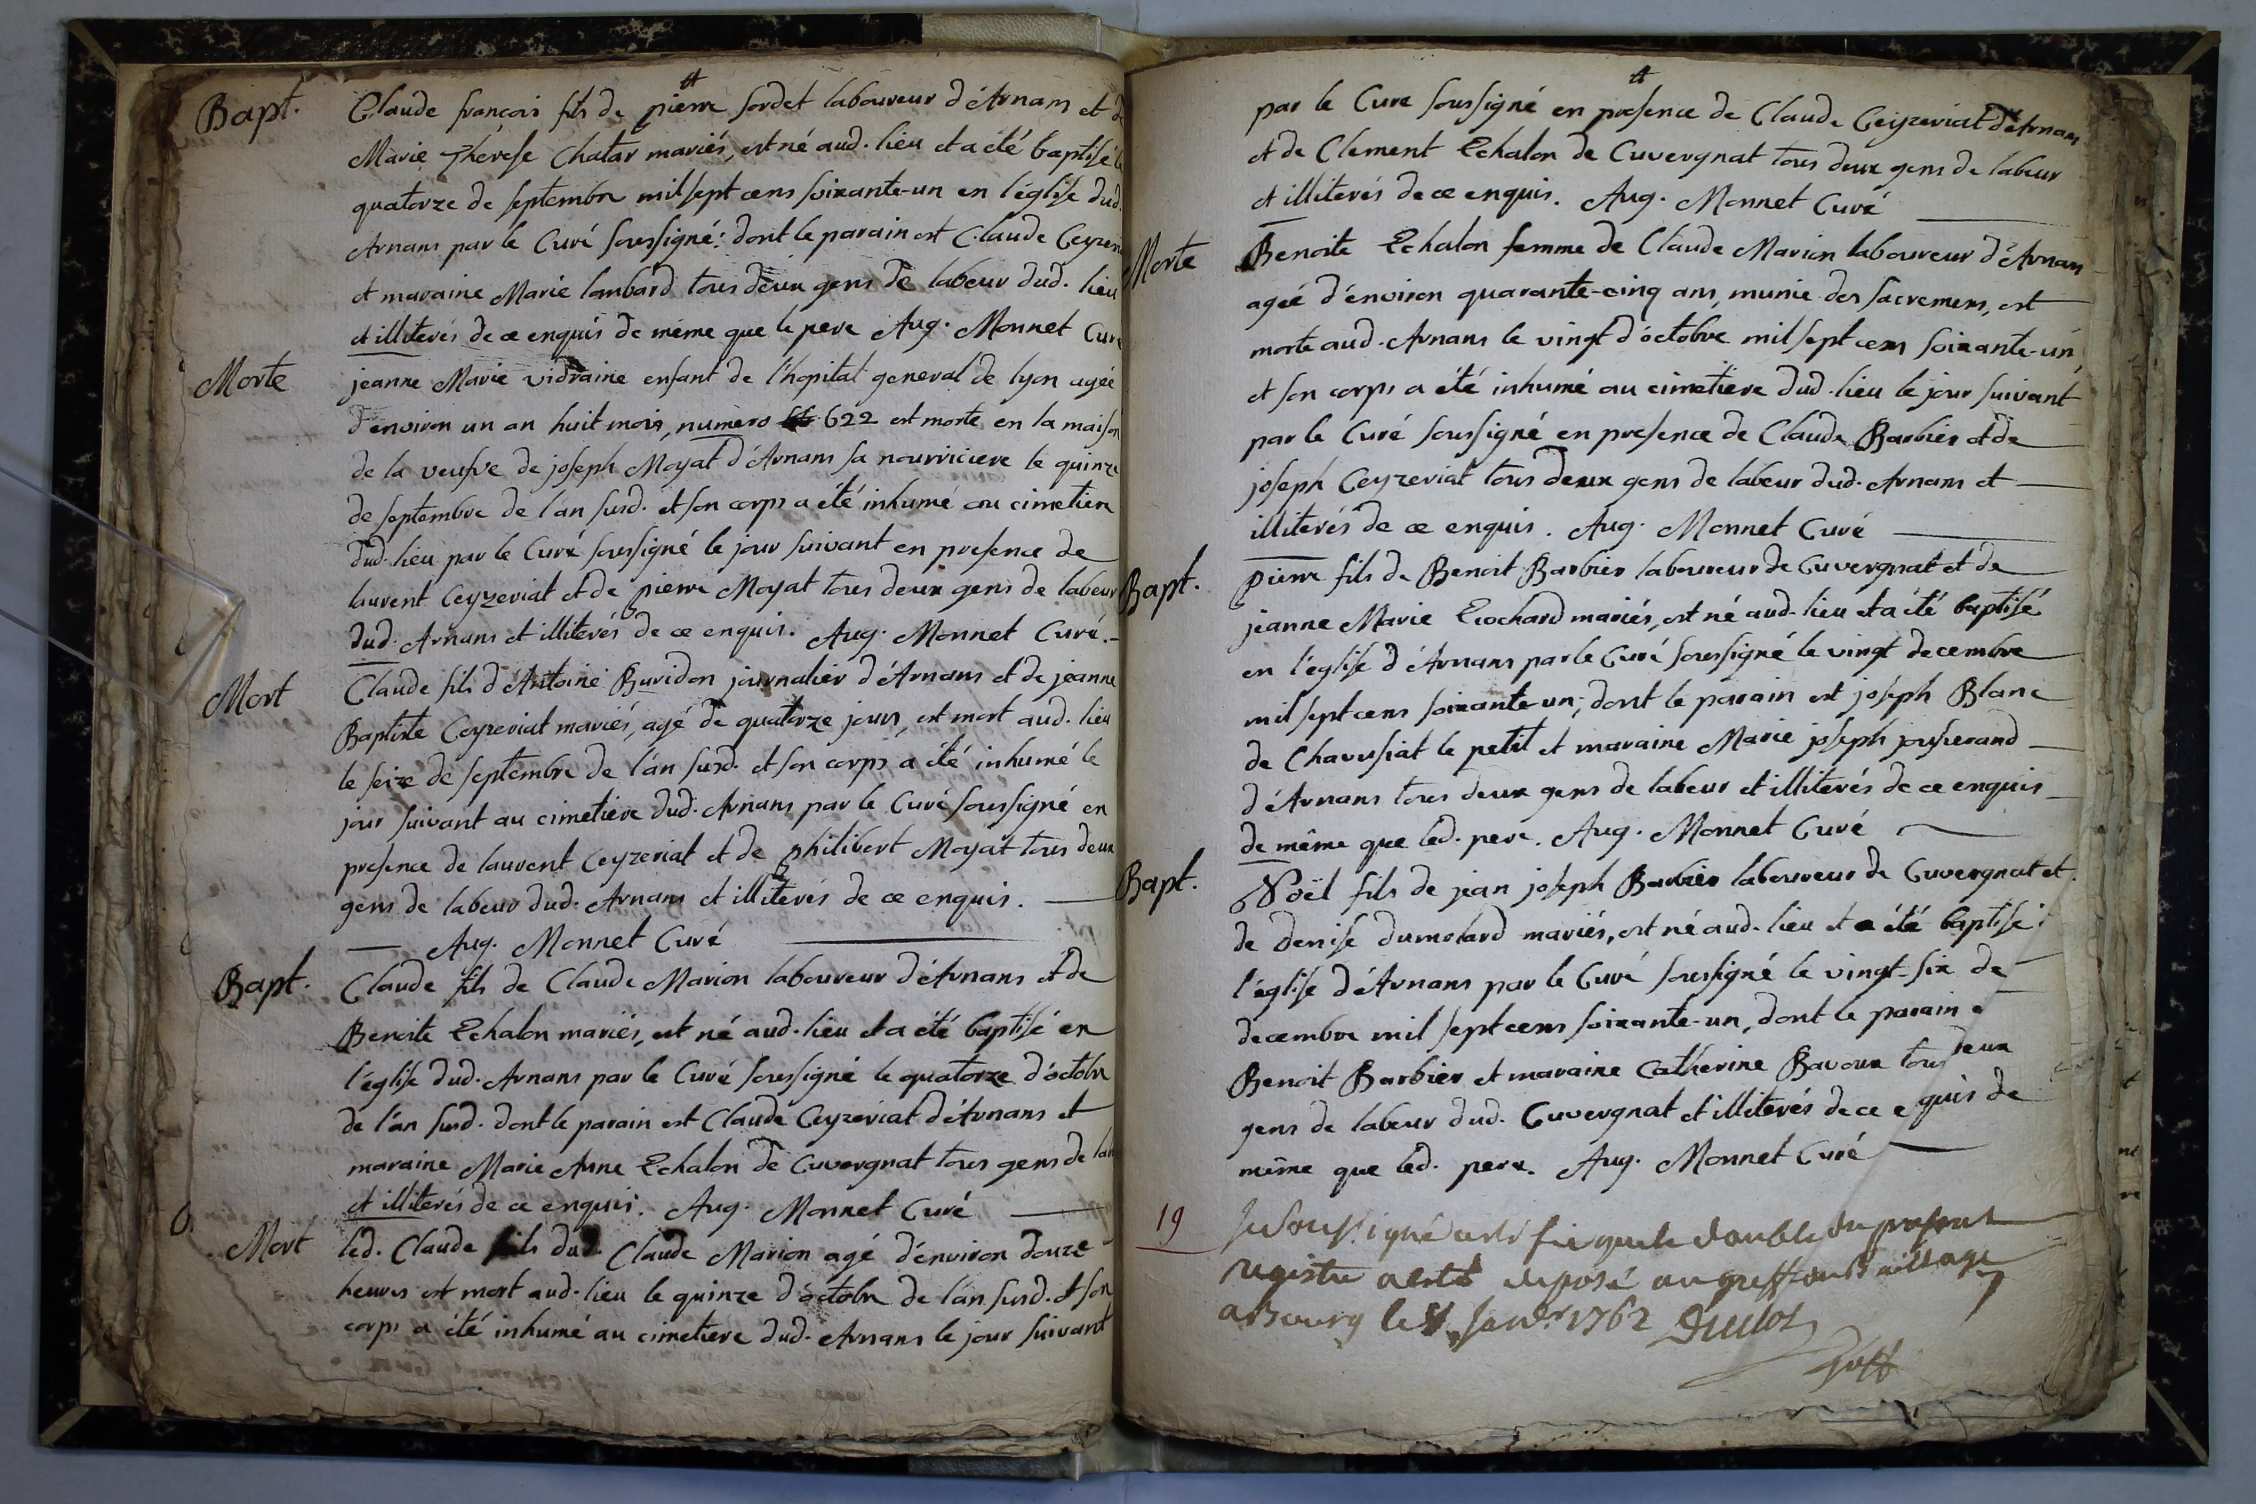 Bapt. Claude françois fils de pierre sordet laboureur d'Arnans et de
Marie Thérese Chatar mariés, est né aud. lieu et a été baptisé le
quatorze de septembre mil sept cens soixante-un en l'église dud.
Arnans par le Curé soussigné: dont le parain est Claude Ceyzeri
et maraine Marie lanbard tous deux gens de labeur dud. lieu
et illiterés de ce enquis de même que le pere Aug. Monnet Curé
Morte jeanne Marie vidraine enfant de l'hopital general de lyon agée
d'environ un an huit mois, numero 622 est morte en la maison
de la veufve de joseph Moyat d'Arnans sa nourriciere le quinze
de septembre de l'an susd. et son corps a été inhumé au cimetiere
dud. lieu par le Curé soussigné le jour suivant en presence de
laurent Ceyzeriat et de pierre Moyat tous deux gens de labeur
dud. Arnans et illiterés de ce enquis. Aug. Monnet Curé.
Mort Claude fils d'Antoine Buridon journalier d'Arnans et de jeanne
Baptiste Ceyzeriat mariés, agé de quatorze jours, est mort aud. lieu
le seize de septembre de l'an susd. et son corps a été inhumé le
jour suivant au cimetiere dud. Arnans par le Curé soussigné en
presence de laurent Ceyzeriat et de philibert Moyat tous deux
gens de labeur dud. Arnans et illiterés de ce enquis.
Aug. Monnet Curé
Bapt. Claude fils de Claude Marion laboureur d'Arnans et de
Benoite Echalon mariés, est né aud. lieu et a été baptisé en
l'église dud. Arnans par le Curé soussigné le quatorze d'octobre
de l'an susd. dont le parain est Claude Ceyzeriat d'Arnans et
maraine Marie Anne Echalon de Cuvergnat tous gens de lab
et illiterés de ce enquis. Aug. Monnet Curé
Mort led. Claude fils dud. Claude Marion agé d'environ douze
heures est mort aud. lieu le quinze d'octobre de l'an susd. et son
corps a été inhumé au cimetiere dud. Arnans le jour suivant
par le Curé soussigné en presence de Claude Ceyzeriat d'Arnans
et de Clement Echalon de Cuvergnat tous deux gens de labeur
et illiterés de ce enquis. Aug. Monnet Curé
Morte Benoite Echalon femme de Claude Marion laboureur d'Arnans
agée d'environ quarante-cinq ans, munie des sacremens, est
morte aud. Arnans le vingt d'octobre mil sept cens soixante-un
et son corps a été inhumé au cimetiere dud. lieu le jour suivant
par le Curé soussigné en presence de Claude Barbier et de
joseph Ceyzeriat tous deux gens de labeur dud. Arnans et
illiterés de ce enquis. Aug. Monnet Curé
Bapt. pierre fils de Benoit Barbier laboureur de Cuvergnat et de
jeanne Marie Ecochard mariés, est né aud. lieu et a été baptisé
en l'église d'Arnans par le Curé soussigné le vingt decembre
mil sept cens soixante-un; dont le parain est joseph Blanc
de Chavusiat le petit et maraine Marie joseph jousserand
d'Arnans tous deux gens de labeur et illiterés de ce enquis
de même que led. pere. Aug. Monnet Curé
Bapt. Noël fils de jean joseph Barbier laboureur de Cuvergnat et
de denise dumolard mariés, est né aud. lieu et a été baptisé
l'église d'Arnans par le Curé soussigné le vingt-six de
decembre mil sept cens soixante-un, dont le parain e
Benoit Barbier et maraine Catherine Bavoux tous deux
gens de labeur dud. Cuvergnat et illiterés de ce e quis de
même que led. pere. Aug. Monnet Curé
19 Je soussigné certifie que le double du present
registre a esté deposé au greffe du Bailliage
a Bourg le Janv. 1762 Duclos
Greff